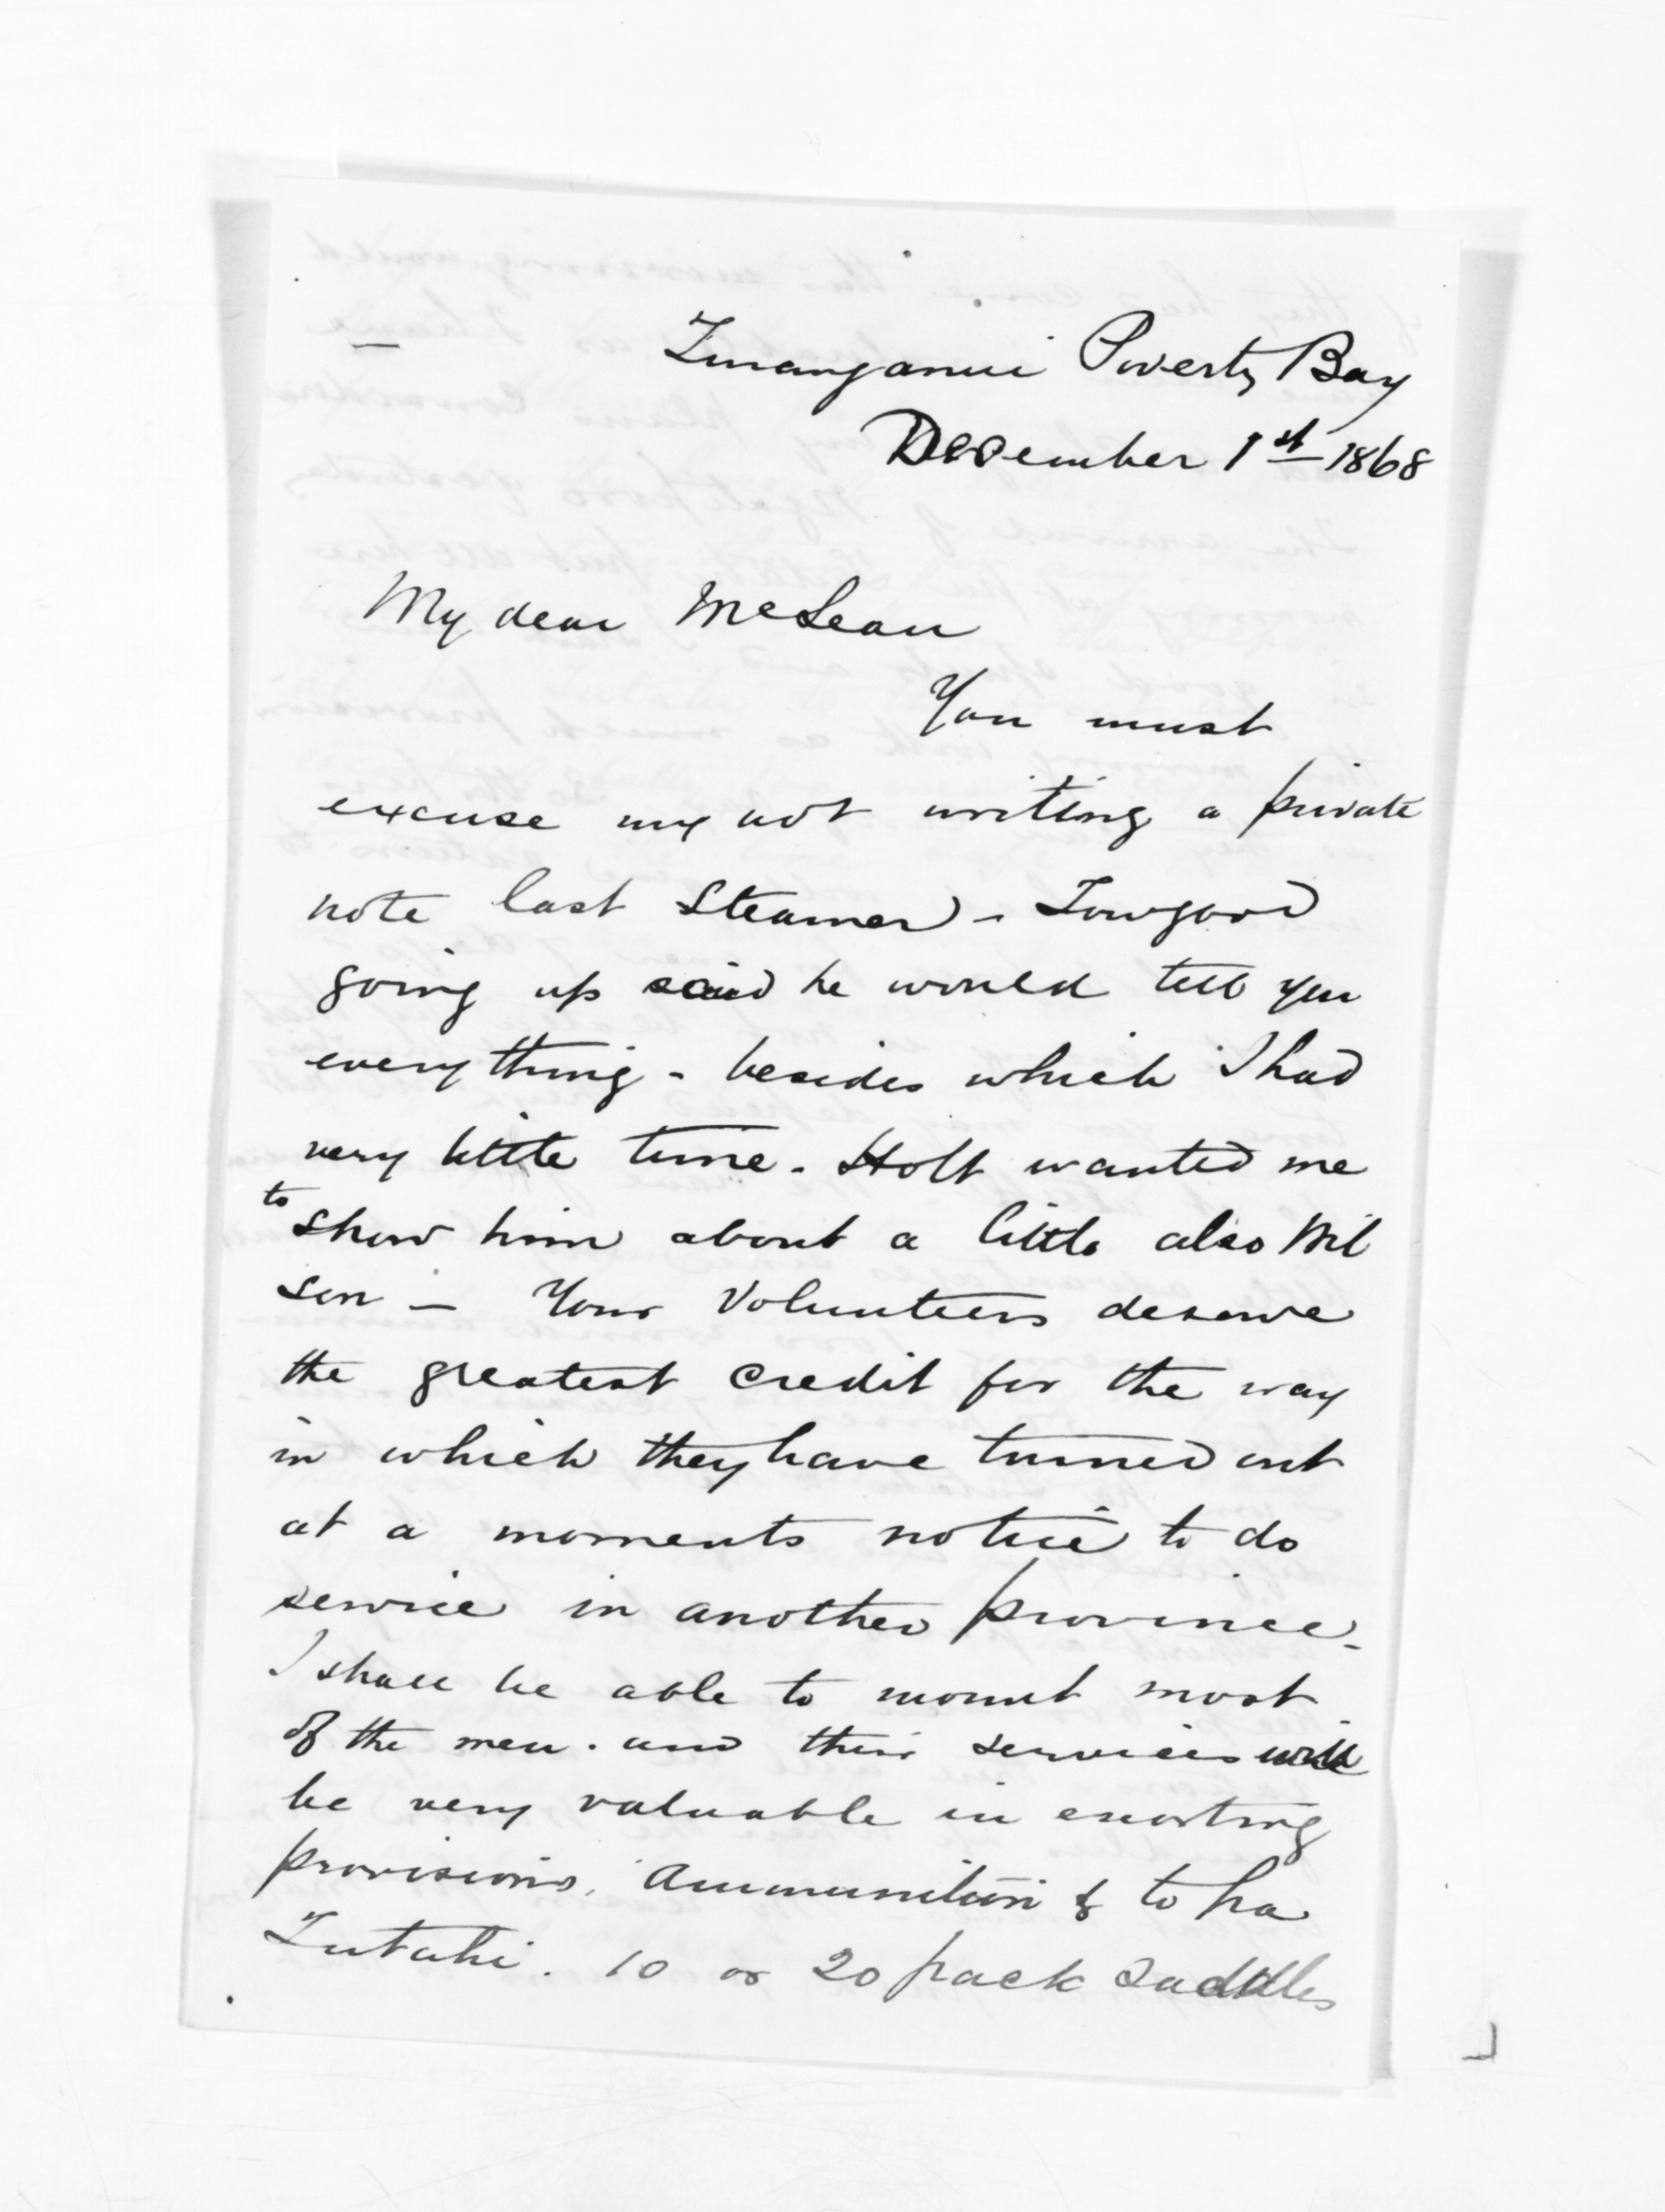 Turanganui Poverty Bay
December 1st 1868
My dear McLean
You must
excuse my not writing a private
note last Steamer - Towgood
going up said he would tell you
everything - besides which I had
very little time. Holt wanted me
to show him about a little also Wil
son - Your Volunteers deserve
the greatest credit for the way
in which they have turned out
at a moments notice to do
service in another province.
I shall be able to mount most
of the men. and their services will
be very valuable in escorting
provisions, Ammunition & to Pa
Tutahi. 10 or 20 pack saddles